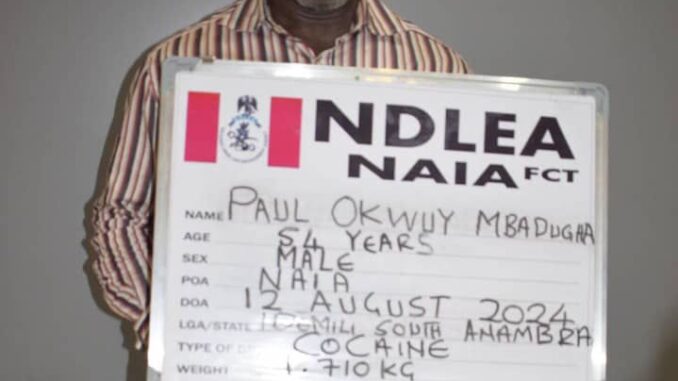 NDLEA
NAIA FCT
NAME PAUL OKWUY MBADUGHA
AGE 54 YEARS
SEX MALE
POA NAIA
DOA 12 AUGUST 2024
LGA/STATE IDEMILI SOUTH ANAMBRA
TYPE OF COCAINE
WEIGHT 1.710KG